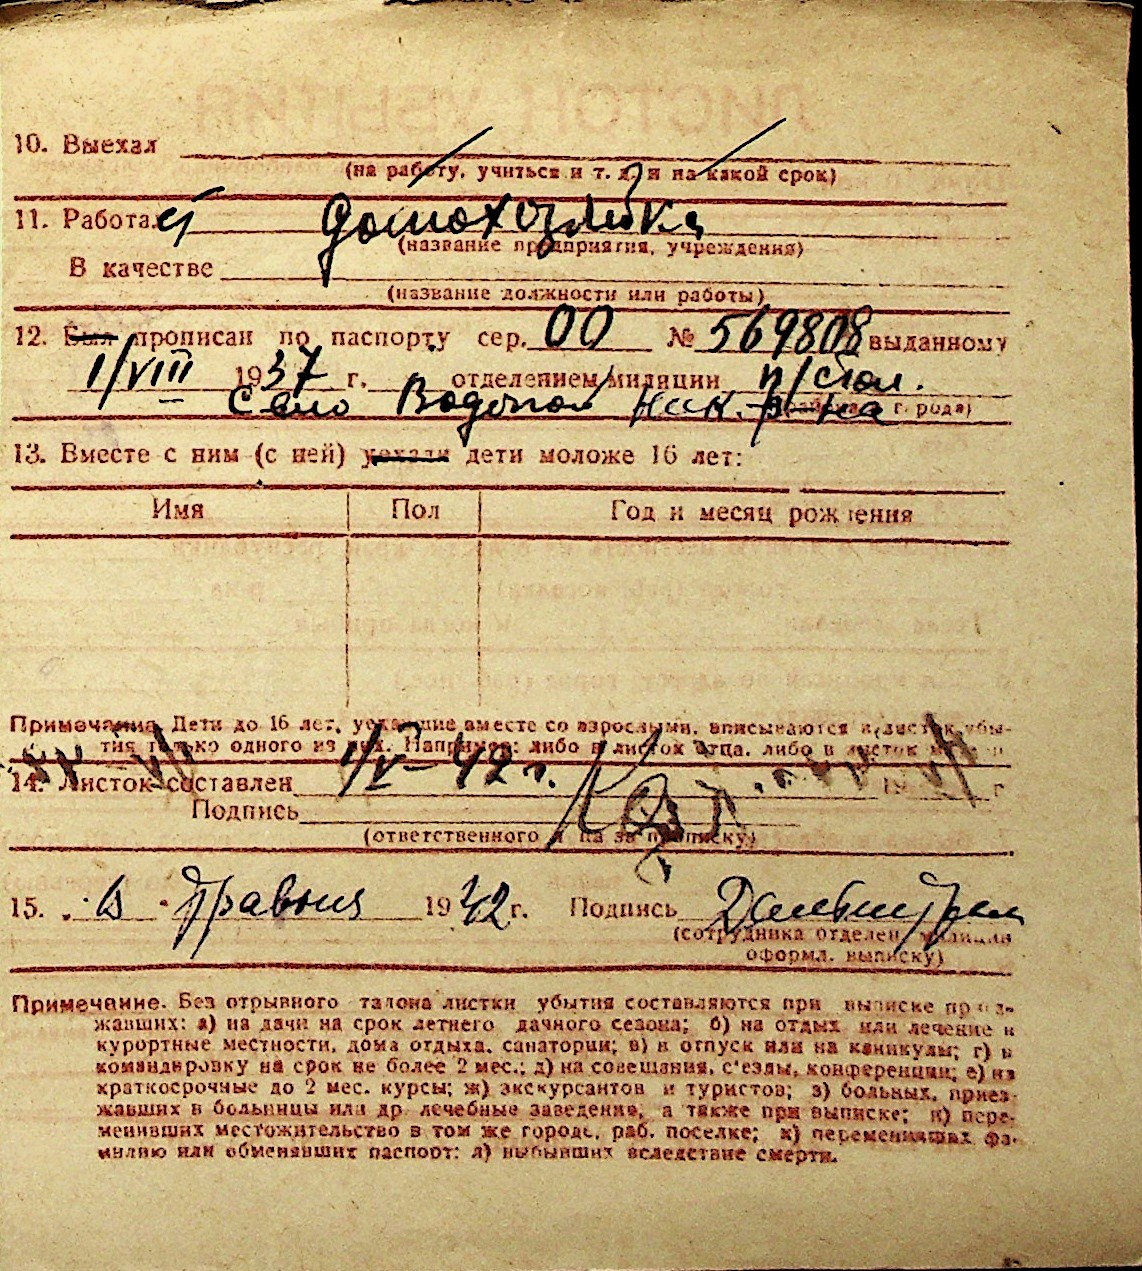 10. Выехал
(на работу, учиться и т. д. и на какой срок)
11. Работает домохозяйка
(название предприятия, учреждения)
В качестве
(название должности или работы)
12. Был прописан по паспорту сер. 00 № 569808 выданному
1/VIII 1937 г. отделением милиции п/стол.
Село Водопой Ник. р-на города)
13. Вместе с ним (с ней) уехали дети моложе 16 лет:
Имя Пол Год и месяц рождения
Примечание. Дети до 16 лет, уехавшие вместе со взрослыми, вписываются в листок убы-
тия только одного из них. Например: либо в листок отца, либо в листок
14. Листок составлен 1/V-42 г. 19 г
Подпись
(ответственного за прописку)
15. травня 1942 г. Подпись
(сотрудника отделен. милиции
оформл. выписку)
Примечание. Без отрывного талона листки убытия составляются при выписке приез-
жавших: а) на дачи на срок летнего дачного сезона; б) на отдых или лечение в
курортные местности, дома отдыха, санатории; в) в отпуск или на каникулы; г) в
командировку на срок не более 2 мес.; д) на совещания, с'езды, конференции; е) на
краткосрочные до 2 мес. курсы; ж) экскурсантов и туристов; з) больных, приез-
жавших в больницы или др лечебные заведение, а также при выписке; и) пере-
менивших местожительство в том же городе, раб. поселке; к) переменивших фа-
милию или обменявших паспорт; л) выбывших вследствие смерти.